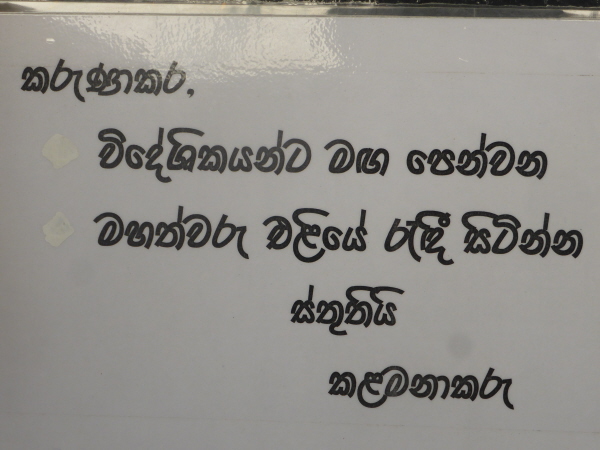 කරුණාකර,
විදේශිකයන්ට මඟ පෙන්වන
මහත්වරු එළියේ රැඳී සිටින්න
ස්තුතියි
කළමනාකරු